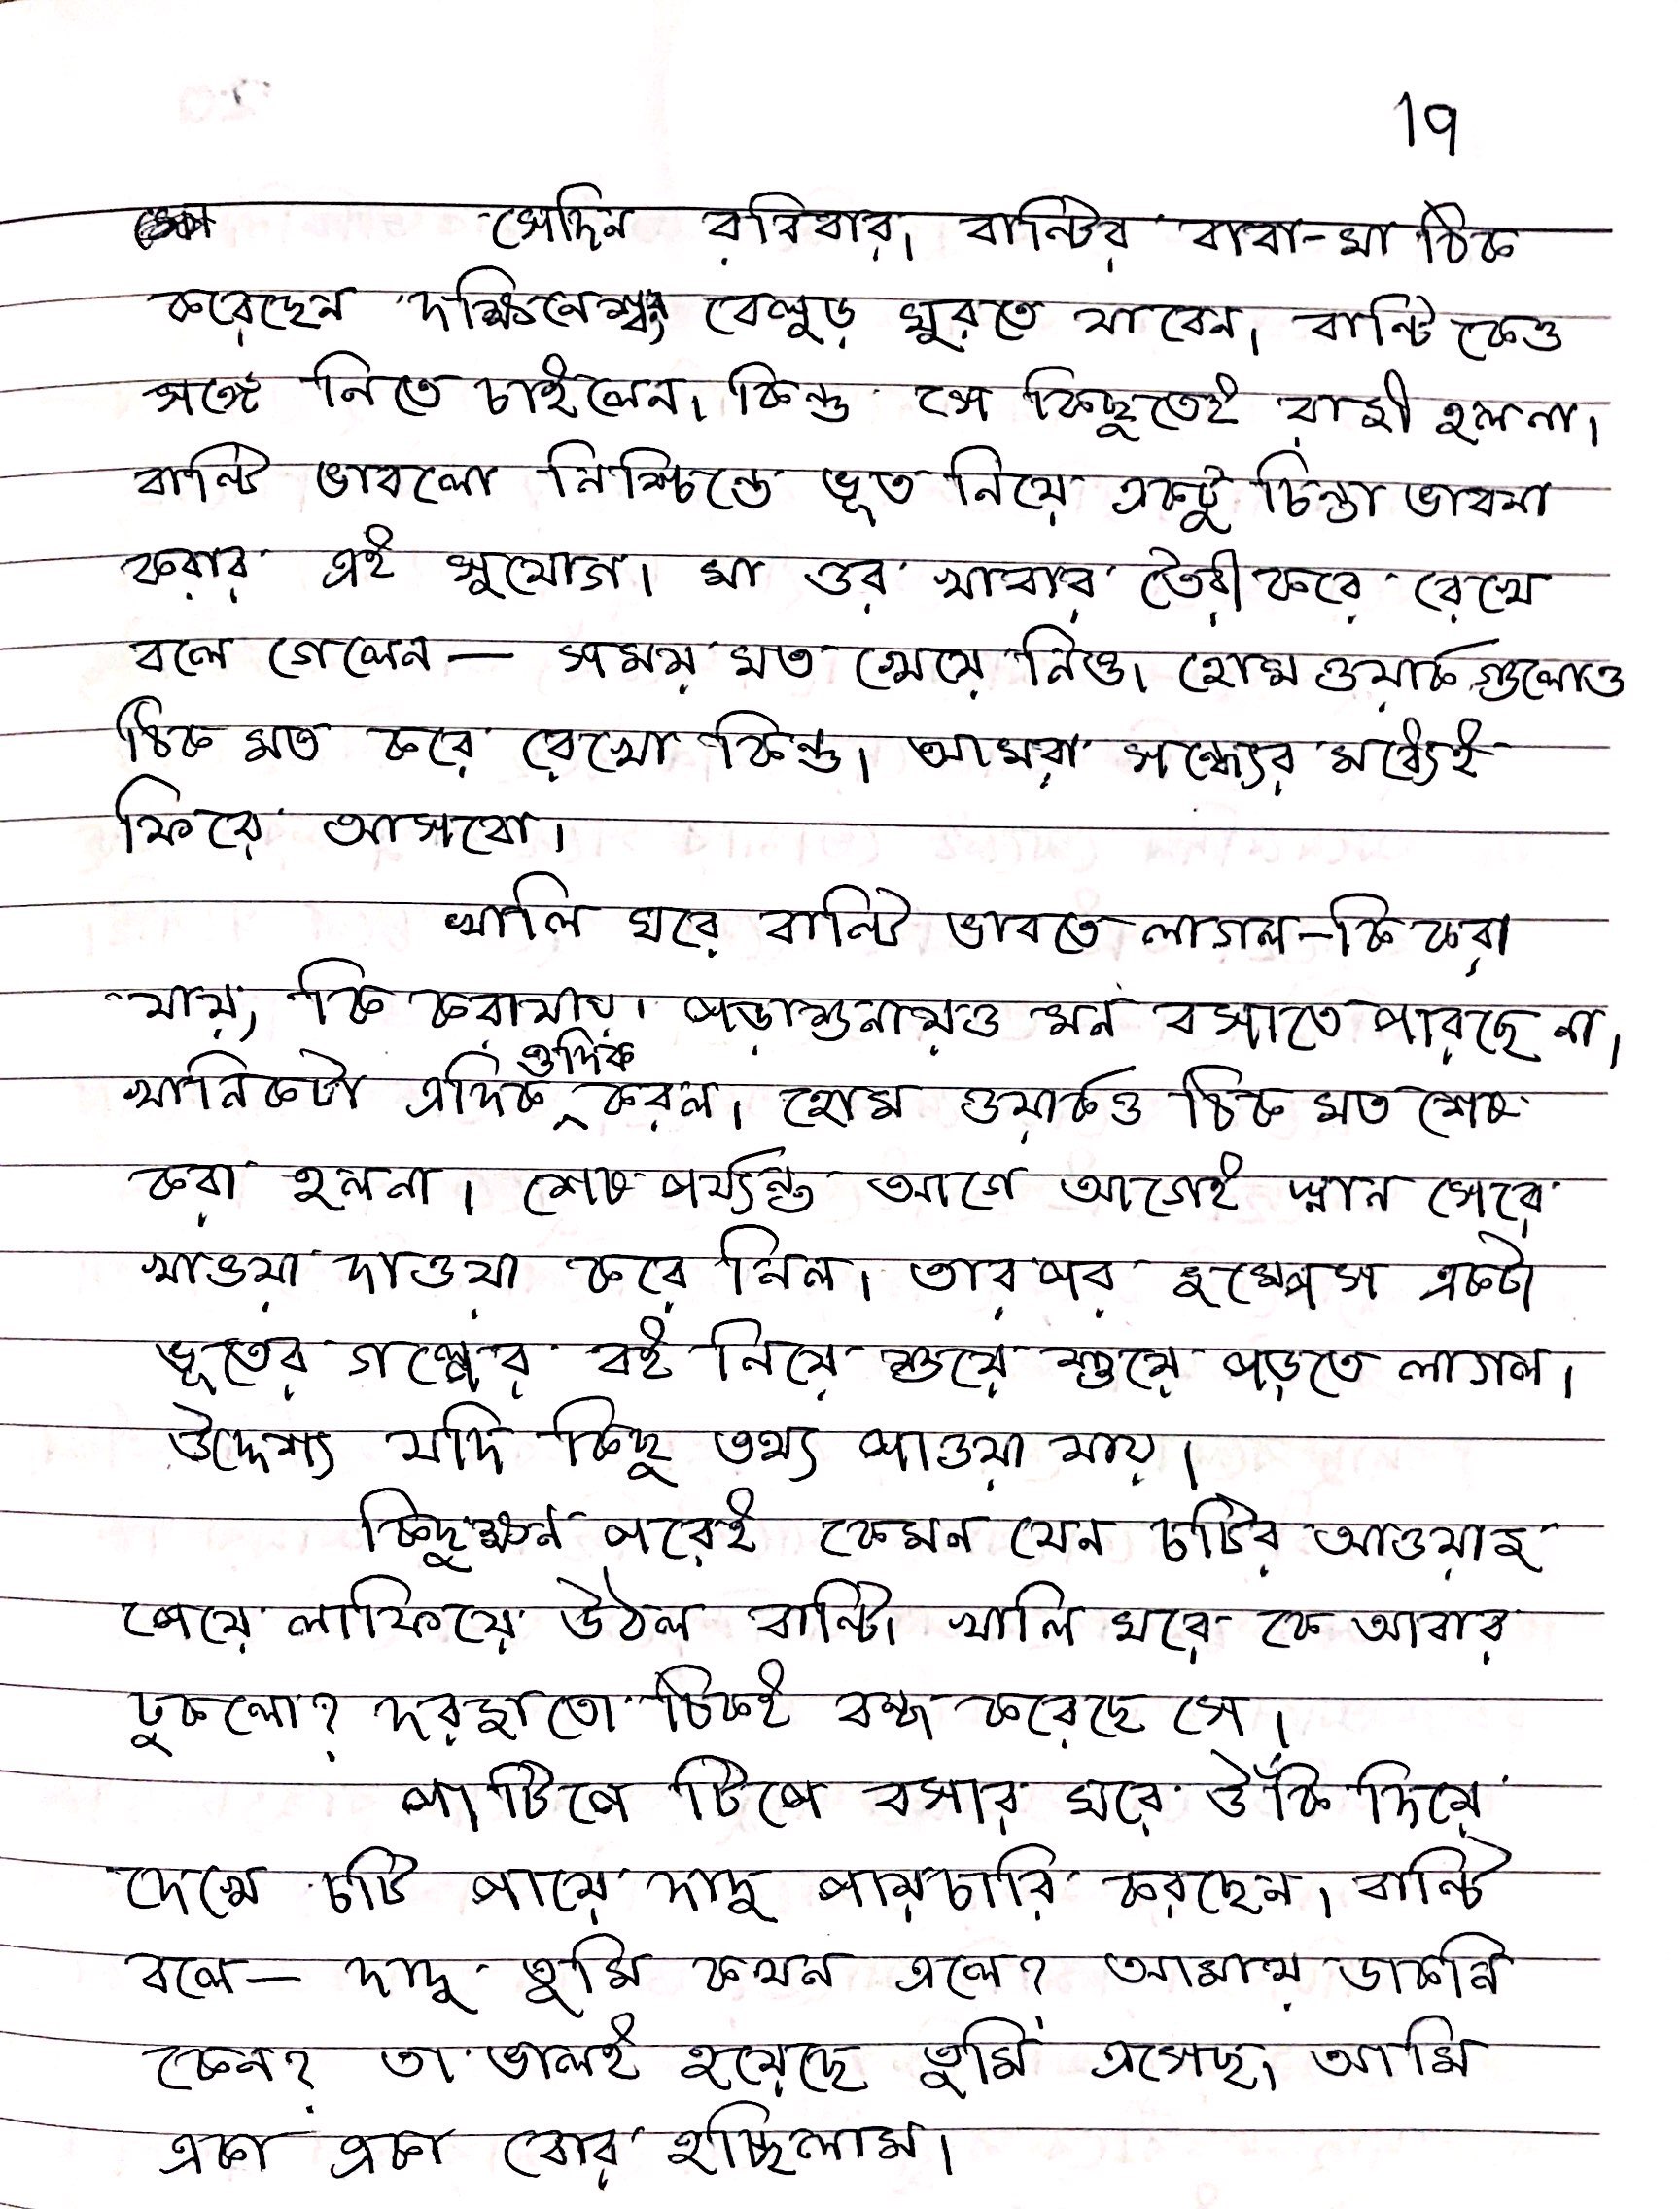 19
সেদিন রবিবার। বান্টির বাবা-মা ঠিক
করেছেন দক্ষিনেশ্বর বেলুড় ঘুরতে যাবেন। বান্টি কেও
সঙ্গে নিতে চাইলেন। কিন্তু সে কিছুতেই রাজী হলনা।
বান্টি ভাবলো নিশ্চিন্তে ভূত নিয়ে একটু চিন্তা ভাবনা
করার এই সুযোগ। মা ওর খাবার তৈরী করে রেখে
বলে গেলেন — সময় মত খেয়ে নিও। হোম ওয়ার্ক গুলোও
ঠিক মত করে রেখো কিন্তু। আমরা সন্ধ্যের মধ্যেই
ফিরে আসবো।
খালি ঘরে বান্টি ভাবতে লাগল - কি করা
যায়, কি করাযায়। পড়াশুনায়ও মন বসাতে পারছে না।
খানিকটা এদিক ওদিক করল। হোম ওয়ার্কও ঠিক মত শেষ
করা হলনা। শেষ পর্য্যন্ত আগে আগেই স্নান সেরে
খাওয়া দাওয়া করে নিল। তার পর একটা
ভূতের গল্পের বই নিয়ে শুয়ে শুয়ে পড়তে লাগল।
উদ্দেশ্য যদি কিছু তথ্য পাওয়া যায়।
কিছুক্ষন পরেই কেমন যেন চটির আওয়াজ
পেয়ে লাফিয়ে উঠল বান্টি। খালি ঘরে কে আবার
ঢুকলো? দরজাতো ঠিকই বন্ধ করেছে সে।
পা টিপে টিপে বসার ঘরে উঁকি দিয়ে
দেখে চটি পায়ে দাদু পায়চারি করছেন। বান্টি
বলে — দাদু তুমি কখন এলে? আমায় ডাকনি
কেন? তা ভালই হয়েছে তুমি এসেছ। আমি
একা একা বোর হচ্ছিলাম।